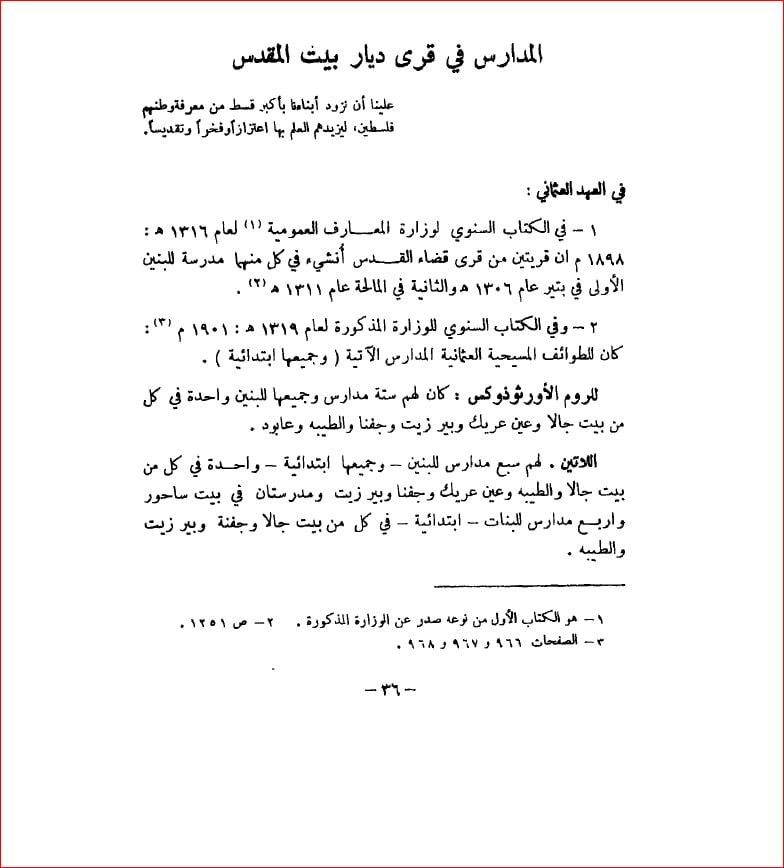 المدارس في قرى ديار بيت المقدس
علينا أن نزود أبناءنا بأكبر قسط من معرفة وطنهم
فلسطين، ليزيدهم العلم بها اعتزازاً وفخراً وتقديساً.
في العهد العثماني :
١ – في الكتاب السنوي لوزارة المعــارف العمومية (١) لعام ١٣١٦ هـ :
١٨٩٨ م ان قريتين من قرى قضاء القــدس أُنشيء في كل منهما مدرسة للبنين
الأولى في بتير عام ١٣٠٦ هـ والثانية في المالحة عام ١٣١١ هـ (٢) .
٢ – وفي الكتاب السنوي للوزارة المذكورة لعام ١٣١٩ هـ : ١٩٠١ م (٣) :
كان للطوائف المسيحية العثمانية المدارس الآتية ( وجميعها ابتدائية ) .
للروم الأورثوذوكس : كان لهم ستة مدارس وجميعها للبنين واحدة في كل
من بيت جالا وعين عريك وبير زيت وجفنا والطيبه وعابود .
اللاتين . لهم سبع مدارس للبنين – وجميعها ابتدائية – واحدة في كل من
بيت جالا والطيبه وعين عريك وجفنا وبير زيت ومدرستان في بيت ساحور
واربع مدارس للبنات – ابتدائية – في كل من بيت جالا وجفنة وبير زيت
والطيبه .
١– هو الكتاب الأول من نوعه صدر عن الوزارة المذكورة . ٢– ص ١٢٥١ .
٣– الصفحات ٩٦٦ و ٩٦٧ و ٩٦٨ .
– ٣٦ –